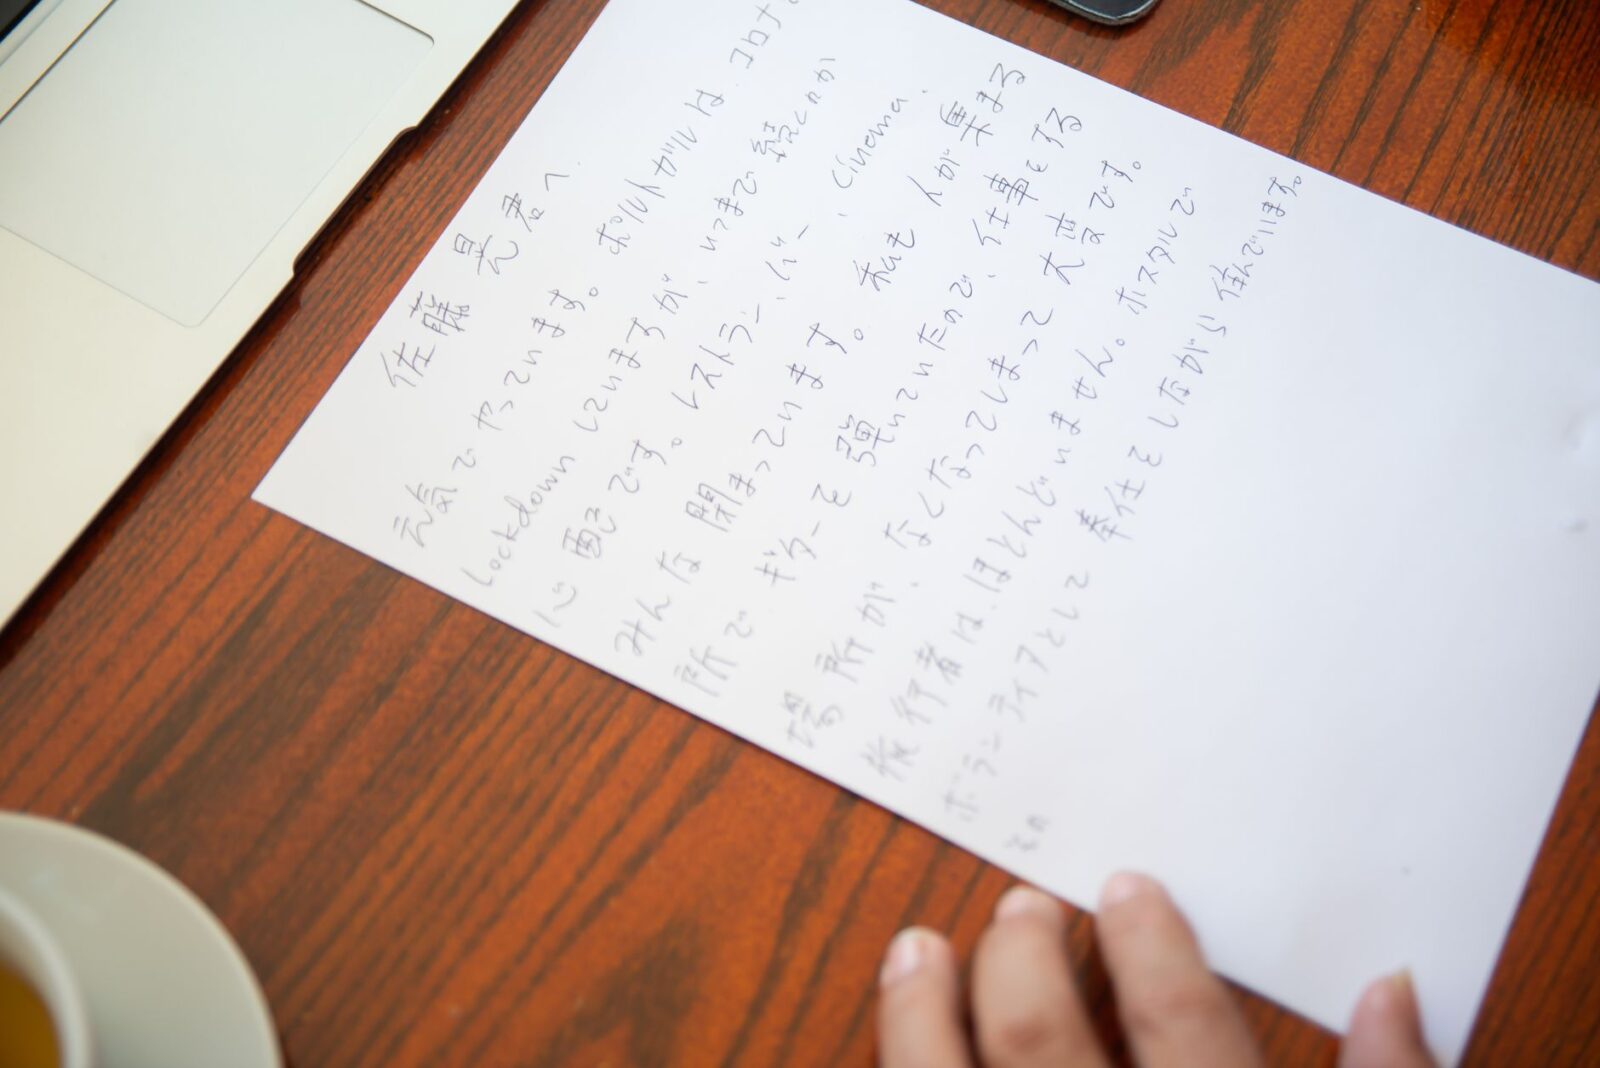 佐藤 晃君へ
元気でやっています。ポルトガルは、コロナで
lockdownしていますが、いつまで続くのか
心配です。レストラン、バー、cinema、
みんな閉まっています。私も人が集まる
所でギターを弾いていたので、仕事をする
場所が、なくなってしまって大変です。
旅行者は、ほとんどいません。ホスタルで
ボランティアとして奉仕をしながら住んでいます。
その